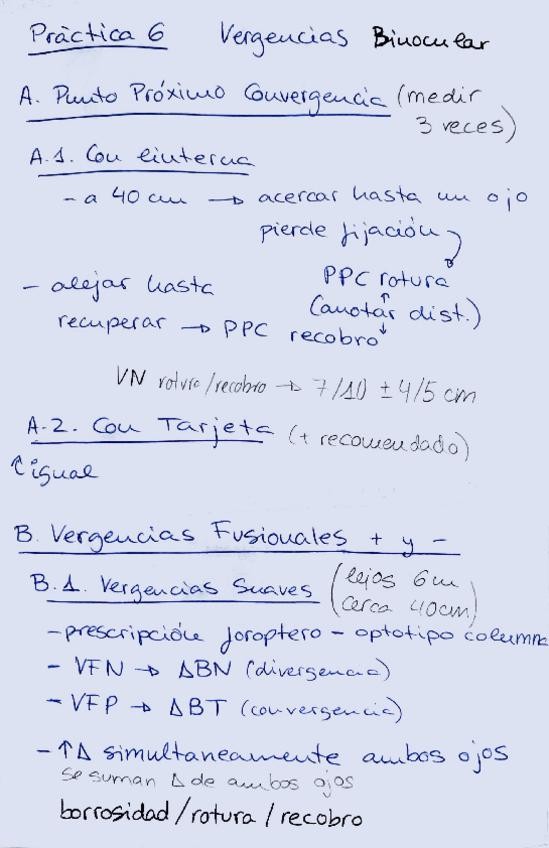 Pràctica 6 Vergencias Binocular
A. Punto Próximo Convergencia (medir
3 veces)
A.1. Con linterna
- a 40 cm → acercar hasta un ojo
pierde fijación
PPC rotura
- alejar hasta
(anotar dist.)
recuperar → PPC recobro
VN rotura/recobro → 7/10 ± 4/5 cm
A.2. Con Tarjeta (+ recomendado)
↑ igual
B. Vergencias Fusionales + y -
B.1. Vergencias Suaves (lejos 6m
cerca 40cm)
- prescripción foroptero - optotipo columna
- VFN → ΔBN (divergencia)
- VFP → ΔBT (convergencia)
- ↑Δ simultaneamente ambos ojos
se suman Δ de ambos ojos
borrosidad / rotura / recobro